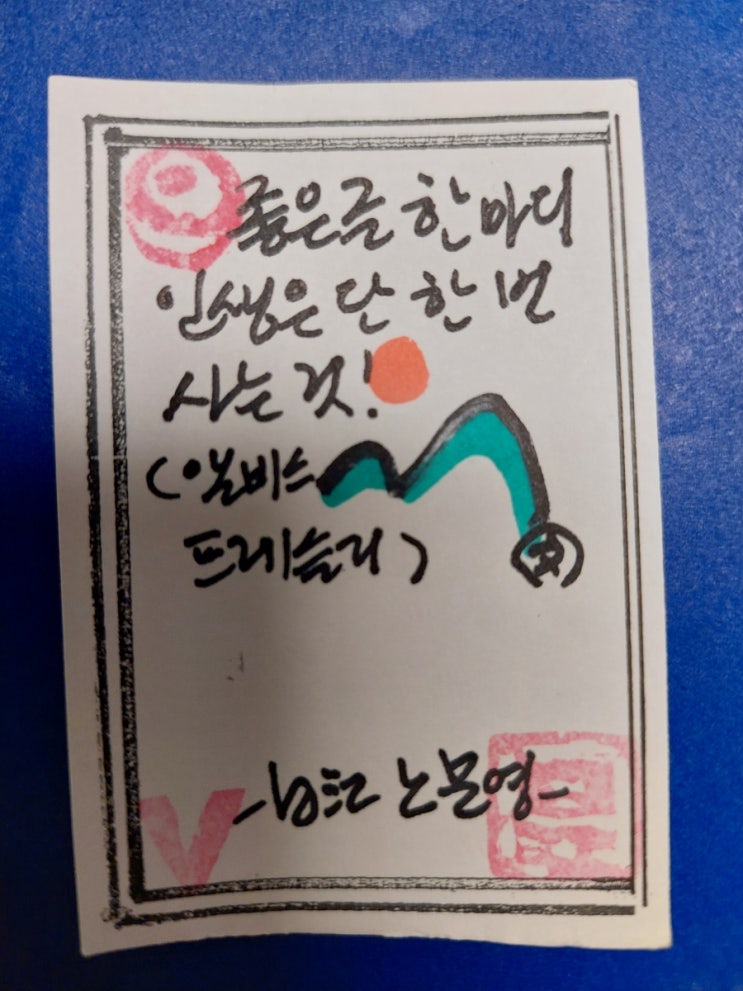 좋은글 한마디
인생은 단 한 번
사는 것!
(엘비스
프레슬리)
노문영-